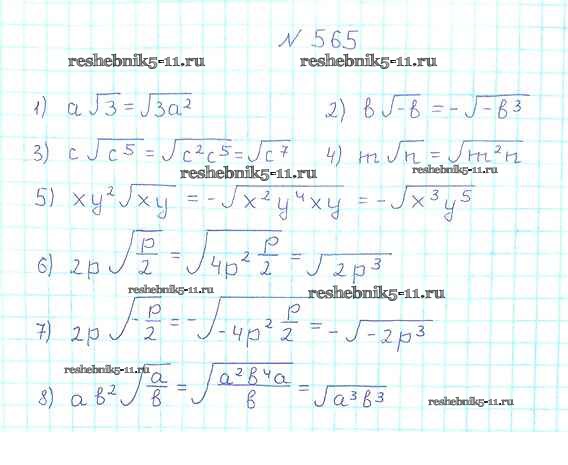 N 565
reshebnik5-11.ru reshebnik5-11.ru
1) a√3 = √3a² 2) в√-в = -√-в³
3) c√c⁵ = √c²c⁵ = √c⁷ 4) m√n = √m²n
reshebnik5-11.ru reshebnik5-11.ru
5) xy²√xy = -√x²y⁴xy = -√x³y⁵
6) 2p√p/2 = √4p² p/2 = √2p³
reshebnik5-11.ru reshebnik5-11.ru
7) 2p√-p/2 = -√-4p² p/2 = -√-2p³
reshebnik5-11.ru
8) aв²√a/в = √a²в⁴a/в = √a³в³
reshebnik5-11.ru